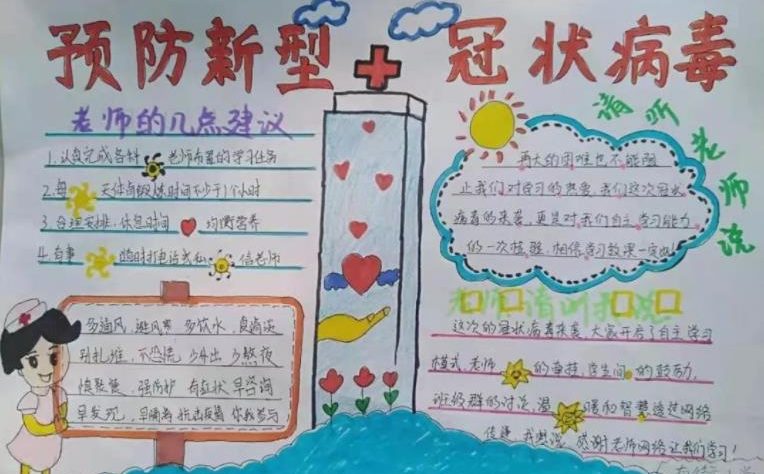 预防新型冠状病毒
老师的几点建议
1.认真完成各科老师布置的学习任务
2.每天体育锻炼时间不少于1个小时
3.合理安排,休息时间 均衡营养
4.有事 随时打电话或私信老师
多通风,避风寒 多饮水,食清淡
别扎堆,不恐慌 少外出 少熬夜
慎聚餐,强防护 有症状 早咨询
早发现,早隔离 抗击疫毒 你我参与
请听老师说
再大的困难也不能阻
止我们对学习的热爱,我们这次冠状
病毒的来袭,更是对我们自主学习能力
的一次检验,相信学习效果一定
老师请听我说
这次的冠状病毒来袭,大家开启了自主学习
模式,老师 的直播,学生间 的鼓励,
班级群的讨论,温暖和智慧透过网络
传递,我想说 感谢老师网络让我们学习!